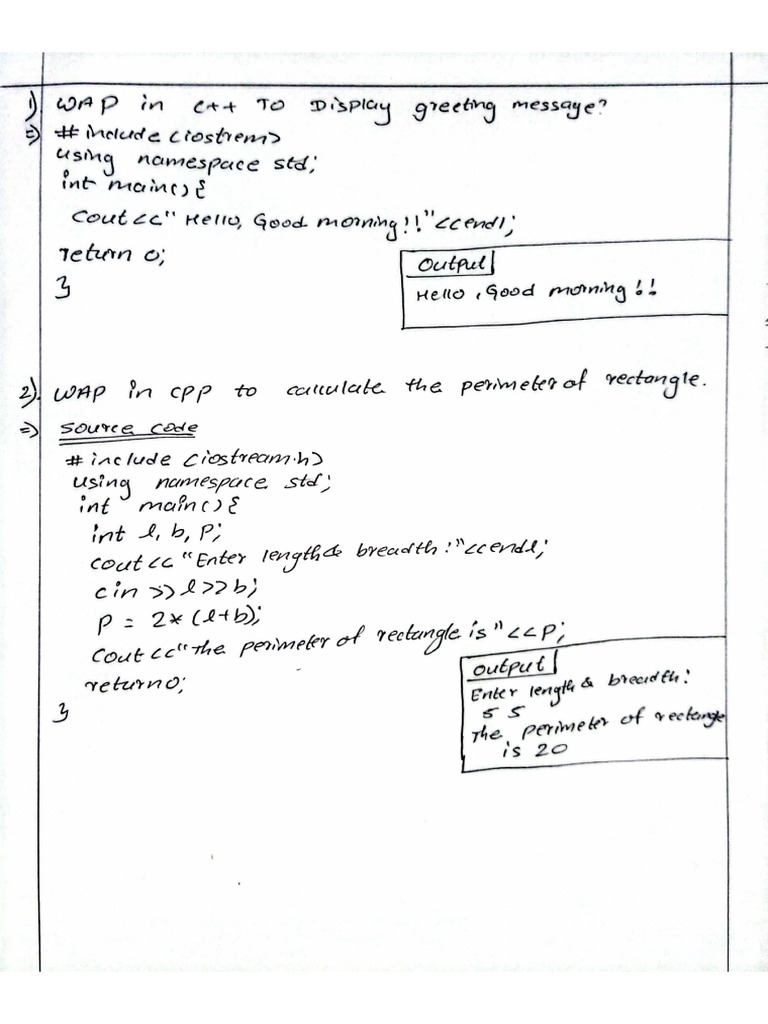 1) WAP in C++ To Display greeting message?
=> #include <iostrem>
using namespace std;
int main(){
cout<<"Hello, Good morning!!"<<endl;
return 0;
}
Output
Hello, Good morning!!
2). WAP in cpp to calculate the perimeter of rectangle.
=> source code
#include <iostream.h>
using namespace std;
int main(){
int l, b, P;
cout<<"Enter length& breadth:"<<endl;
cin>>l>>b;
P = 2*(l+b);
cout<<"The perimeter of rectangle is"<<P;
return 0;
}
Output
Enter length & breadth:
5 5
The perimeter of rectangle
is 20